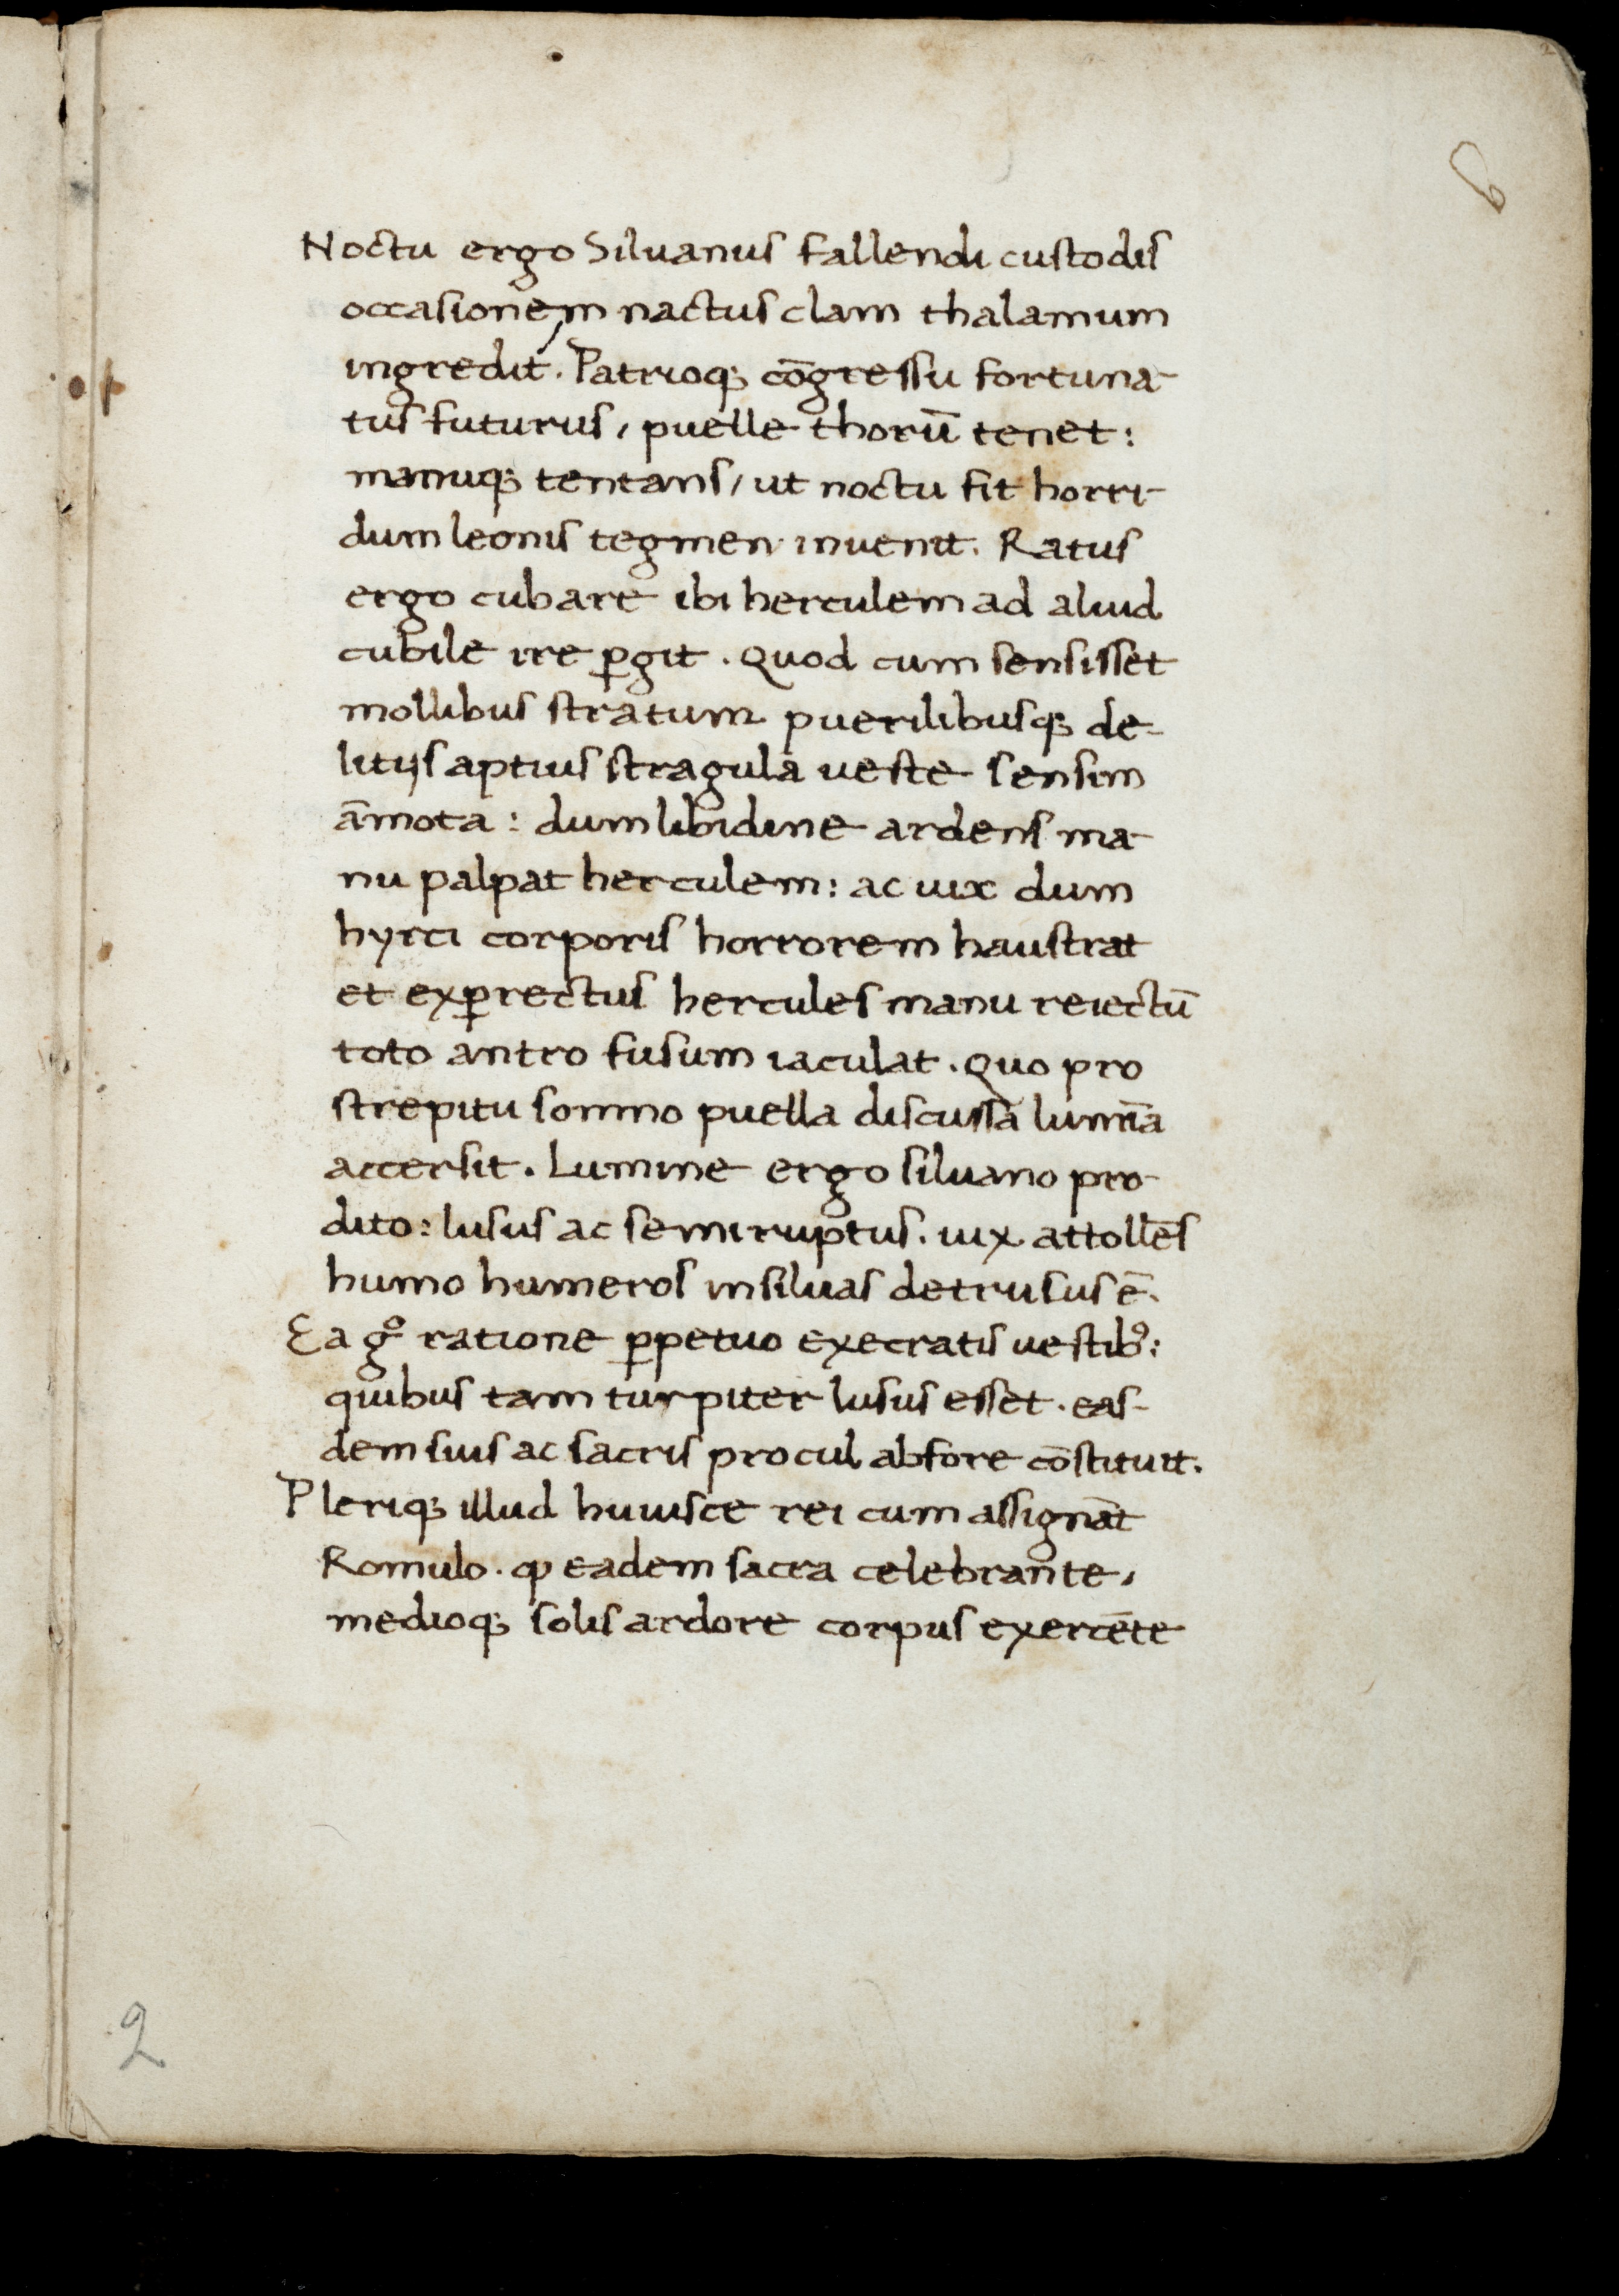 Noctu ergo Siluanus fallendi custodis
occasionem nactus clam thalamum
ingredit᷒. Patrioqꝫ cōgressu fortuna-
tus futurus, puelle thorū tenet:
manuqꝫ tentans, ut noctu fit horri-
dum leonis tegmen inuenit. Ratus
ergo cubare ibi herculem ad aliud
cubile ire ꝑgit. Quod cum sensisset
mollibus stratum puerilibusqꝫ de-
litijs aptius stragula ueste sensim
āmota: dum libidine ardens ma-
nu palpat herculem: ac uix dum
hyrci corporis horrorem haustrat
et exꝑrectus hercules manu reiectū
toto antro fusum iaculat. Quo pro
strepitu somno puella discussa lumīa
accersit. Lumine ergo siluano pro-
dito: lusus ac semiruptus. uix attollēs
humo humeros in siluas detrusus ē.
Ea gͦ ratione ꝑpetuo execratis uestibꝰ:
quibus tam turpiter lusus esset. eas-
dem suis ac sacris procul abfore cōstituit.
Pleriqꝫ illud huiusce rei cum assignāt
Romulo. ꝙ eadem sacra celebrante,
medioqꝫ solis ardore corpus exercēte
2